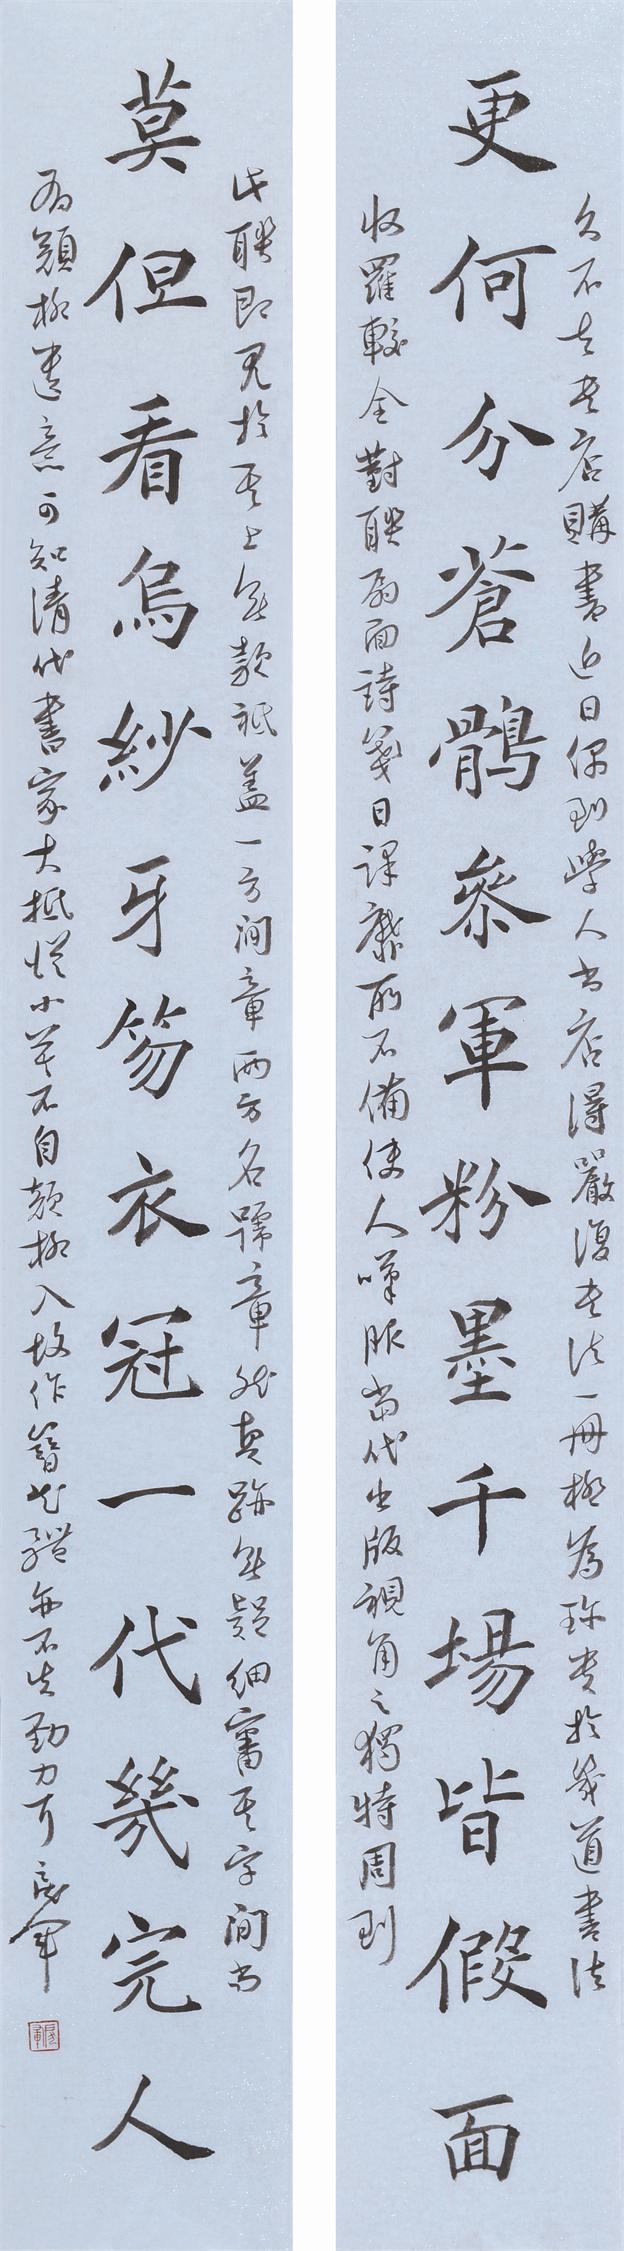 久不去書店購書近日偶到學人書店得嚴復書法一冊極為珍貴於幾道書法
更何分蒼鶻參軍粉墨千場皆假面
收羅較全對聯扇面詩箋日課靡所不備使人嘆服當代出版視角之獨特周到
此聯即見於其上無款祇蓋一方閒章兩方名號章然真跡無疑細審其字間尚
莫但看烏紗牙笏衣冠一代幾完人
有顏柳遺意可知清代書家大抵從小莫不自顏柳入故作簪花體亦不失勁力耳